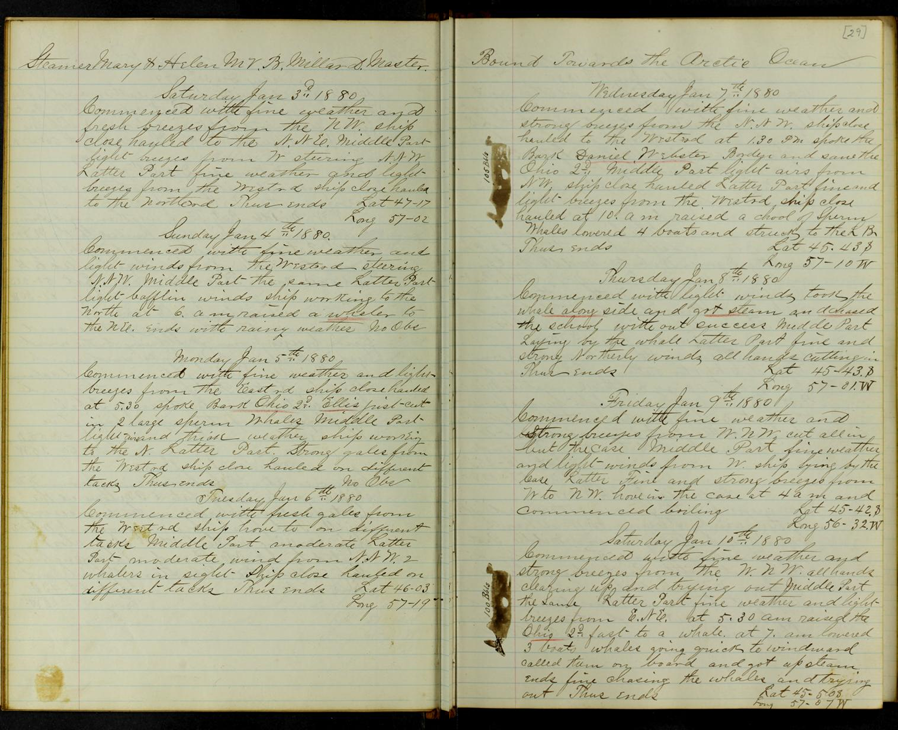 Steamer Mary & Helen M.V.B. Millard Master.
Saturday Jan 3d 1880
Commenced with fine weather and
fresh breezes from the NW. ship
close hauled to the N.N.E. Middle Part
light breezes from W steering N.N.W.
Latter Part fine weather and light
breezes from the Westrd ship close hauled
to the Northrd Thus ends Lat 47-17
Long 57-02
Sunday Jan 4th 1880.
Commenced with fine weather and
light winds from the Westrd steering
N.N.W. Middle Part the same Latter Part
light bafflin winds ship working to the
North at 6. am raised a whaler to
the NE. Ends with rainy weather No Obs
Monday Jan 5th 1880
Commenced with fine weather and light
breezes from the Eastrd ship close hauled
at 5.30 spoke Bark Ohio 2d. Ellis just cut
in 2 large sperm Whales Middle Part
light and thick weather, ship working
to the N. Latter Part, Strong gales from
the Westrd ship close hauled on different
tacks Thus ends No Obs
Tuesday Jan 6th 1880
Commenced with fresh gales from
the Westrd ship hove to on different
tacks Middle Part moderate Latter
Part moderate wind from N.N.W. 2
whalers in sight Ship close hauled on
different tacks Thus ends Lat 46-03
Long 57-19
[29]
Bound Towards the Arctic Ocean
Wednesday Jan 7th 1880
Commenced with fine weather and
strong breezes from the N.N.W. ship close
hauled to the Westrd at 1.30 PM spoke the
Bark Daniel Webster Bodge and saw the
Ohio 2d Middle Part light airs from
NW, ship close hauled Latter Part fine and
light breezes from the Westrd, ship close
hauled at 10 am raised a chool of Sperm
Whales lowered 4 boats and struck to the L B.
Thus ends Lat 45-43.S
Long 57-10 W
105 Bbls
Thursday Jan 8th 1880
Commenced with light winds took the
whale along side and got steam and chased
the school without success Middle Part
Laying by the whale Latter Part fine and
strong Northerly winds all hands cutting in
Thus ends Lat 45-43.S
Long 57-01 W
Friday Jan 9th 1880
Commenced with fine weather and
Strong breezes from W.N.W, cut all in
but the case Middle Part fine weather
and light winds from W. ship lying by the
Case Latter fine and strong breezes from
W to NW. hove in the case at 4 am and
commenced boiling Lat 45-42.S
Long 56-32 W
Saturday Jan 10th 1880
Commenced with fine weather and
strong breezes from the W.N.W. all hands
clearing up and trying out Middle Part
the same Latter Part fine weather and light
breezes from E.N.E. at 5.30 am raised the
Ohio 2d fast to a whale. at 7. am lowered
3 boats whales going quick to windward
called them on board and got up steam
ends fine chasing the whales and trying
out Thus ends Lat 45-508
Long 57-07 W
100 Bbls